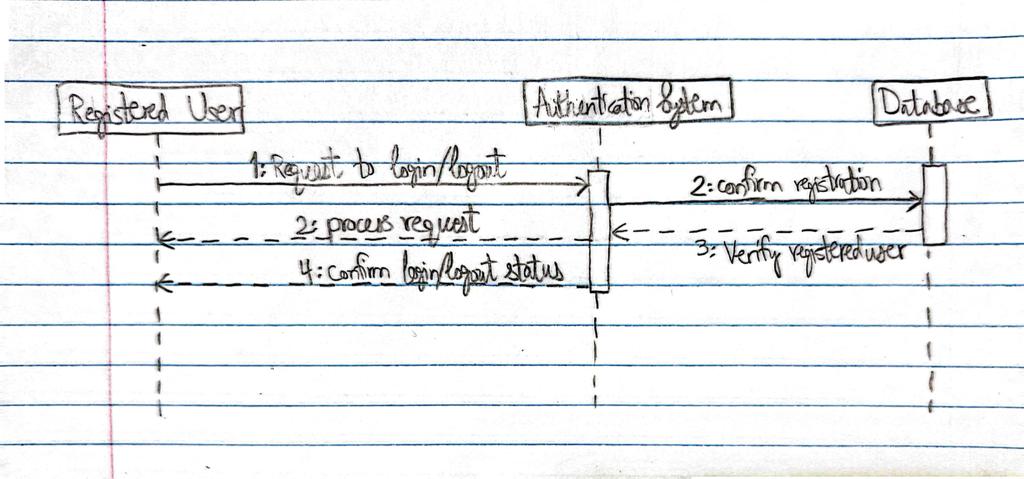 Registered User
Authentication System
Database
1: Request to login/logout
2: confirm registration
2: process request
3: Verify registered user
4: confirm login/logout status